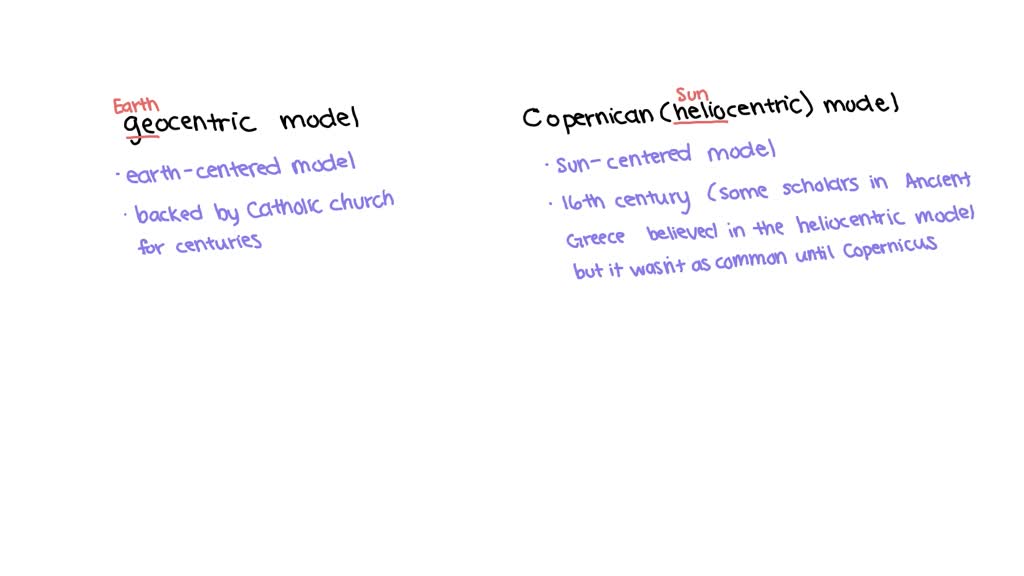 Earth
geocentric model
· earth-centered model
· backed by Catholic church
for centuries
Sun
Copernican (heliocentric) model
· sun-centered model
· 16th century (some scholars in Ancient
Greece believed in the heliocentric model
but it wasn't as common until Copernicus